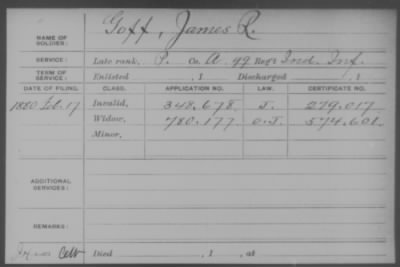 NAME OF SOLDIER: Goff, James R.
SERVICE: Late rank, P. Co. A. 99 Reg't Ind. Inf.
TERM OF SERVICE: Enlisted , 1 Discharged , 1
DATE OF FILING. CLASS. APPLICATION NO. LAW. CERTIFICATE NO.
1880 Feb. 17 Invalid, 348.678 J. 279.017
Widow, 780.177 O.J. 574.601
Minor,
ADDITIONAL SERVICES:
REMARKS:
Died , 1 , at